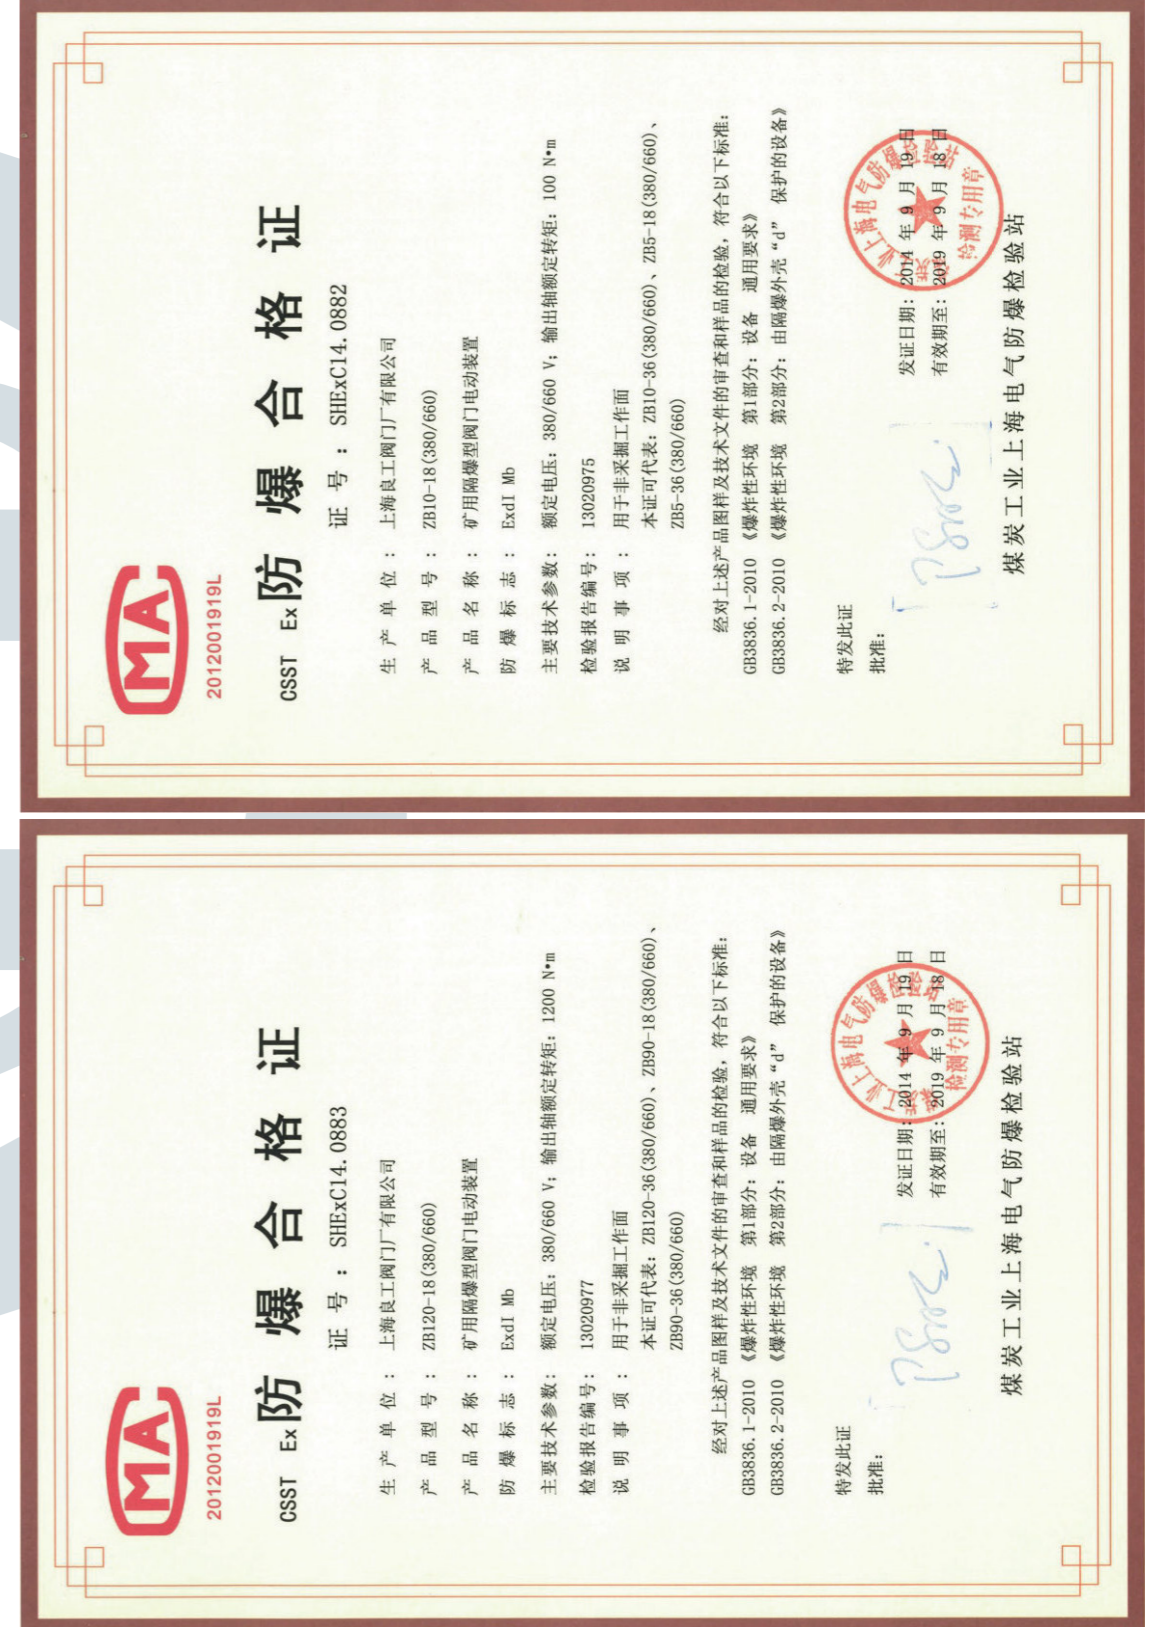 MA
2012001919L
CSST Ex 防爆合格证
证号：SHExC14.0882
生产单位：上海良工阀门厂有限公司
产品型号：ZB10-18(380/660)
产品名称：矿用隔爆型阀门电动装置
防爆标志：ExdI Mb
主要技术参数：额定电压：380/660 V；输出轴额定转矩：100 N•m
检验报告编号：13020975
说明事项：用于非采掘工作面
本证可代表：ZB10-36(380/660)、ZB5-18(380/660)、
ZB5-36(380/660)
经对上述产品图样及技术文件的审查和样品的检验，符合以下标准：
GB3836.1-2010《爆炸性环境 第1部分：设备 通用要求》
GB3836.2-2010《爆炸性环境 第2部分：由隔爆外壳“d”保护的设备》
特发此证
批准：
发证日期：2014 年 9 月 19 日
有效期至：2019 年 9 月 18 日
煤炭工业上海电气防爆检验站
检测专用章
煤炭工业上海电气防爆检验站
MA
2012001919L
CSST Ex 防爆合格证
证号：SHExC14.0883
生产单位：上海良工阀门厂有限公司
产品型号：ZB120-18(380/660)
产品名称：矿用隔爆型阀门电动装置
防爆标志：ExdI Mb
主要技术参数：额定电压：380/660 V；输出轴额定转矩：1200 N•m
检验报告编号：13020977
说明事项：用于非采掘工作面
本证可代表：ZB120-36(380/660)、ZB90-18(380/660)、
ZB90-36(380/660)
经对上述产品图样及技术文件的审查和样品的检验，符合以下标准：
GB3836.1-2010《爆炸性环境 第1部分：设备 通用要求》
GB3836.2-2010《爆炸性环境 第2部分：由隔爆外壳“d”保护的设备》
特发此证
批准：
发证日期：2014 年 9 月 19 日
有效期至：2019 年 9 月 18 日
煤炭工业上海电气防爆检验站
检测专用章
煤炭工业上海电气防爆检验站